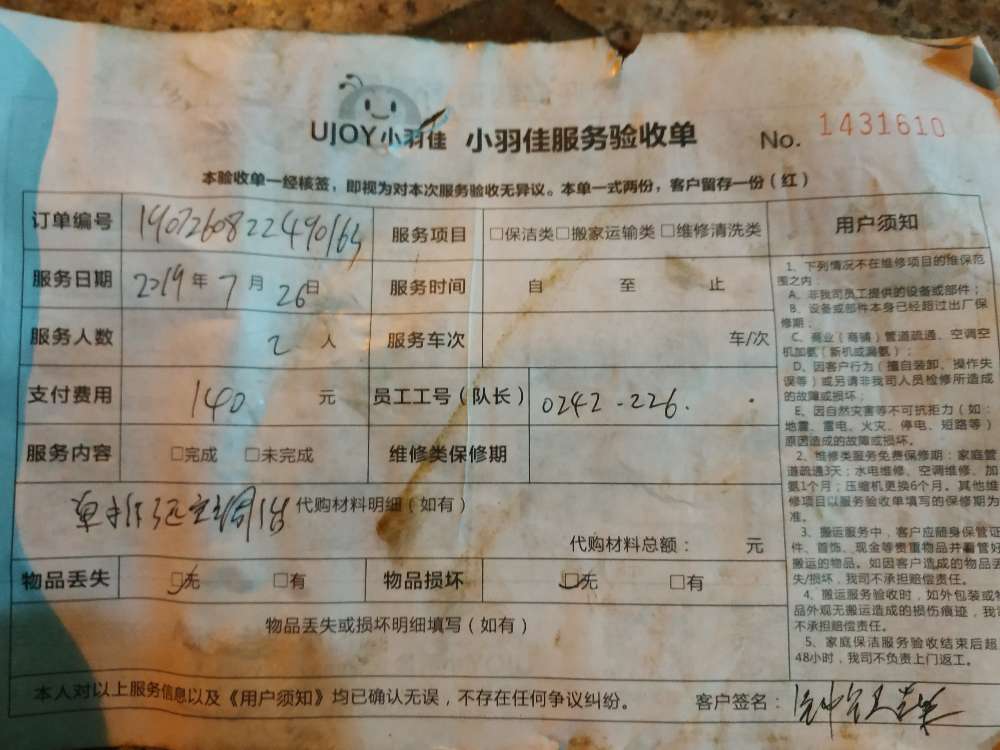 UJOY小羽佳 小羽佳服务验收单 No. 1431610
本验收单一经核签，即视为对本次服务验收无异议。本单一式两份，客户留存一份（红）
订单编号 服务项目 □保洁类□搬家运输类□维修清洗类
服务日期 2019年7月26日 服务时间 自 至 止
服务人数 2人 服务车次 车/次
支付费用 140元 员工工号（队长） 0242-226.
服务内容 □完成 □未完成 维修类保修期
代购材料明细（如有）
代购材料总额： 元
物品丢失 ☑无 □有 物品损坏 ☑无 □有
物品丢失或损坏明细填写（如有）
本人对以上服务信息以及《用户须知》均已确认无误，不存在任何争议纠纷。 客户签名：
用户须知
1、下列情况不在维修项目的维保范
围之内：
A、非我司员工提供的设备或部件；
B、设备或部件本身已经超过出厂保
修期；
C、商业（商铺）管道疏通、空调空
机加氨（新机或漏氨）；
D、因客户行为（擅自装卸、操作失
误等）或另请非我司人员检修所造成
的故障或损坏；
E、因自然灾害等不可抗拒力（如：
地震、雷电、火灾、停电、短路等）
原因造成的故障或损坏。
2、维修类服务免费保修期：家庭管
道疏通3天；水电维修、空调维修、加
氨1个月；压缩机更换6个月。其他维
修项目以服务验收单填写的保修期为
准。
3、搬运服务中，客户应随身保管证
件、首饰、现金等贵重物品并看管好
搬运的物品。如因客户造成的物品丢
失/损坏，我司不承担赔偿责任。
4、搬运服务验收时，如外包装或物
品外观无搬运造成的损伤痕迹，我司
不承担赔偿责任。
5、家庭保洁服务验收结束后超
48小时，我司不负责上门返工。